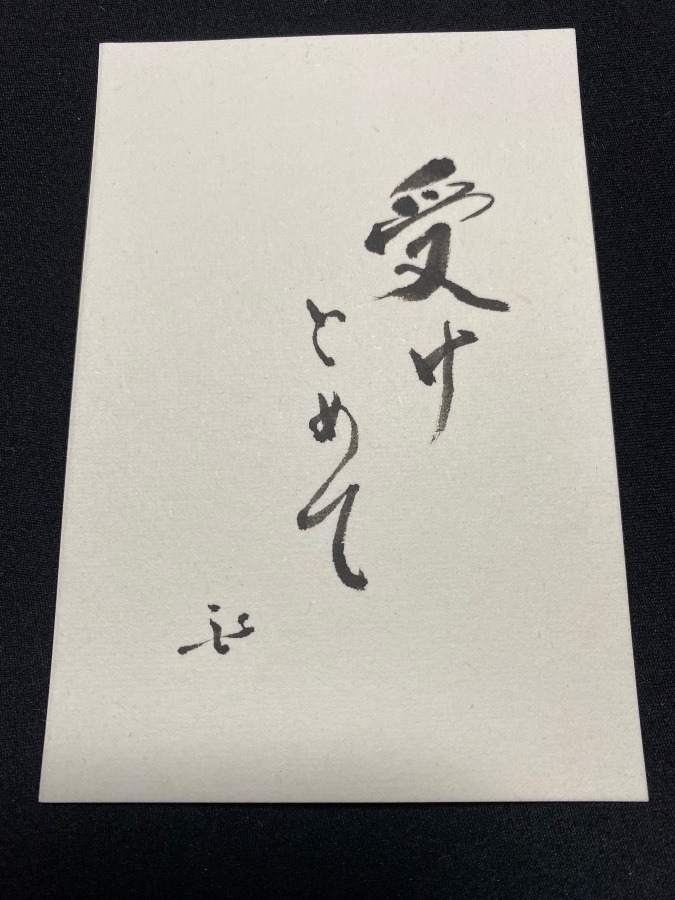 受け
とめて